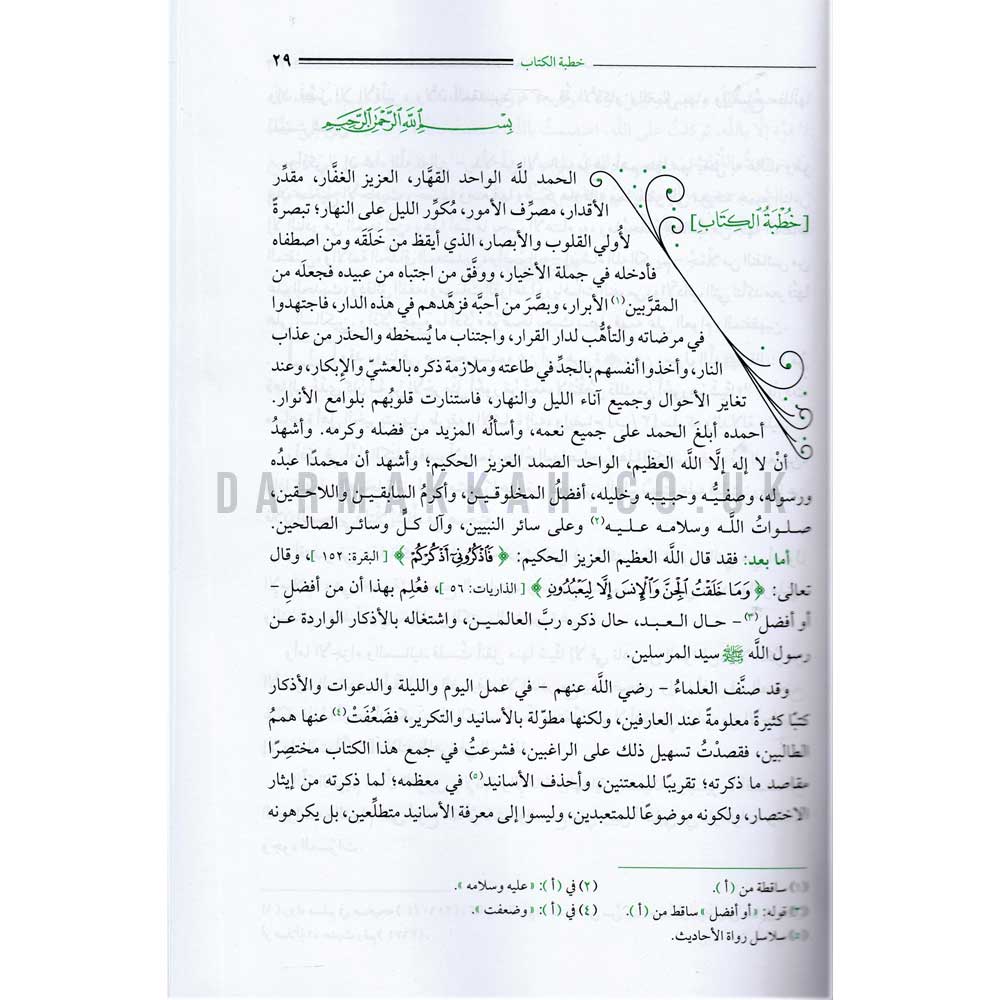 خطبة الكتاب ٢٩
بِسْمِ ٱللَّهِ ٱلرَّحْمَٰنِ ٱلرَّحِيمِ
[خُطْبَةُ ٱلْكِتَابِ]
الحمد للَّه الواحد القهَّار، العزيز الغفَّار، مقدِّر
الأقدار، مصرِّف الأمور، مُكوِّر الليل على النهار؛ تبصرةً
لأُولي القلوب والأبصار، الذي أيقظ من خَلَقَه ومن اصطفاه
فأدخله في جملة الأخيار، ووفَّق من اجتباه من عبيده فجعلَه من
المقرَّبين(١) الأبرار، وبصَّرَ من أحبَّه فزهَّدهم في هذه الدار، فاجتهدوا
في مرضاته والتأهُّب لدار القرار، واجتناب ما يُسخطه والحذر من عذاب
النار، وأخذوا أنفسهم بالجدِّ في طاعته وملازمة ذكره بالعشيّ والإبكار، وعند
تغاير الأحوال وجميع آناء الليل والنهار، فاستنارت قلوبُهم بلوامع الأنوار.
أحمده أبلغَ الحمد على جميع نعمه، وأسألُه المزيد من فضله وكرمه. وأشهدُ
أنْ لا إله إلَّا اللَّه العظيم، الواحد الصمد العزيز الحكيم؛ وأشهد أن محمدًا عبدُه
ورسوله، وصفيُّـه وحبيبه وخليله، أفضلُ المخلوقـين، وأكرمُ السابقـين واللاحقين،
صلـواتُ اللَّـه وسلامه عليـه(٢) وعلى سائر النبيين، وآل كـلٍّ وسائـر الصالحين.
أما بعد: فقد قال اللَّه العظيم العزيز الحكيم: ﴿ فَٱذْكُرُونِىٓ أَذْكُرْكُمْ ﴾ [البقرة: ١٥٢]، وقال
تعالى: ﴿ وَمَا خَلَقْتُ ٱلْجِنَّ وَٱلْإِنسَ إِلَّا لِيَعْبُدُونِ ﴾ [الذاريات: ٥٦]، فعُلِم بهذا أن من أفضلِ –
أو أفضل(٣) – حـال العـبـد، حال ذكره ربَّ العالمـين، واشتغاله بالأذكار الواردة عـن
رسول اللَّه ﷺ سيد المرسلين.
وقد صنَّف العلماءُ – رضي اللَّه عنهم – في عمل اليوم والليلة والدعوات والأذكار
كتبًا كثيرةً معلومةً عند العارفين، ولكنها مطوّلة بالأسانيد والتكرير، فضَعُفَتْ(٤) عنها هممُ
الطالبين، فقصدْتُ تسهيل ذلك على الراغبين، فشرعتُ في جمع هذا الكتاب مختصِرًا
مقاصد ما ذكرته؛ تقريبًا للمعتنين، وأحذف الأسانيد(٥) في معظمه؛ لما ذكرته من إيثار
الاختصار، ولكونه موضوعًا للمتعبدين، وليسوا إلى معرفة الأسانيد متطلِّعين، بل يكرهونه
(١) ساقطة من (أ). (٢) في (أ): «عليه وسلامه».
(٣) قوله: «أو أفضل» ساقط من (أ). (٤) في (أ): «وضعفت».
(٥) سلاسل رواة الأحاديث.
DARMAKKAH.CO.UK